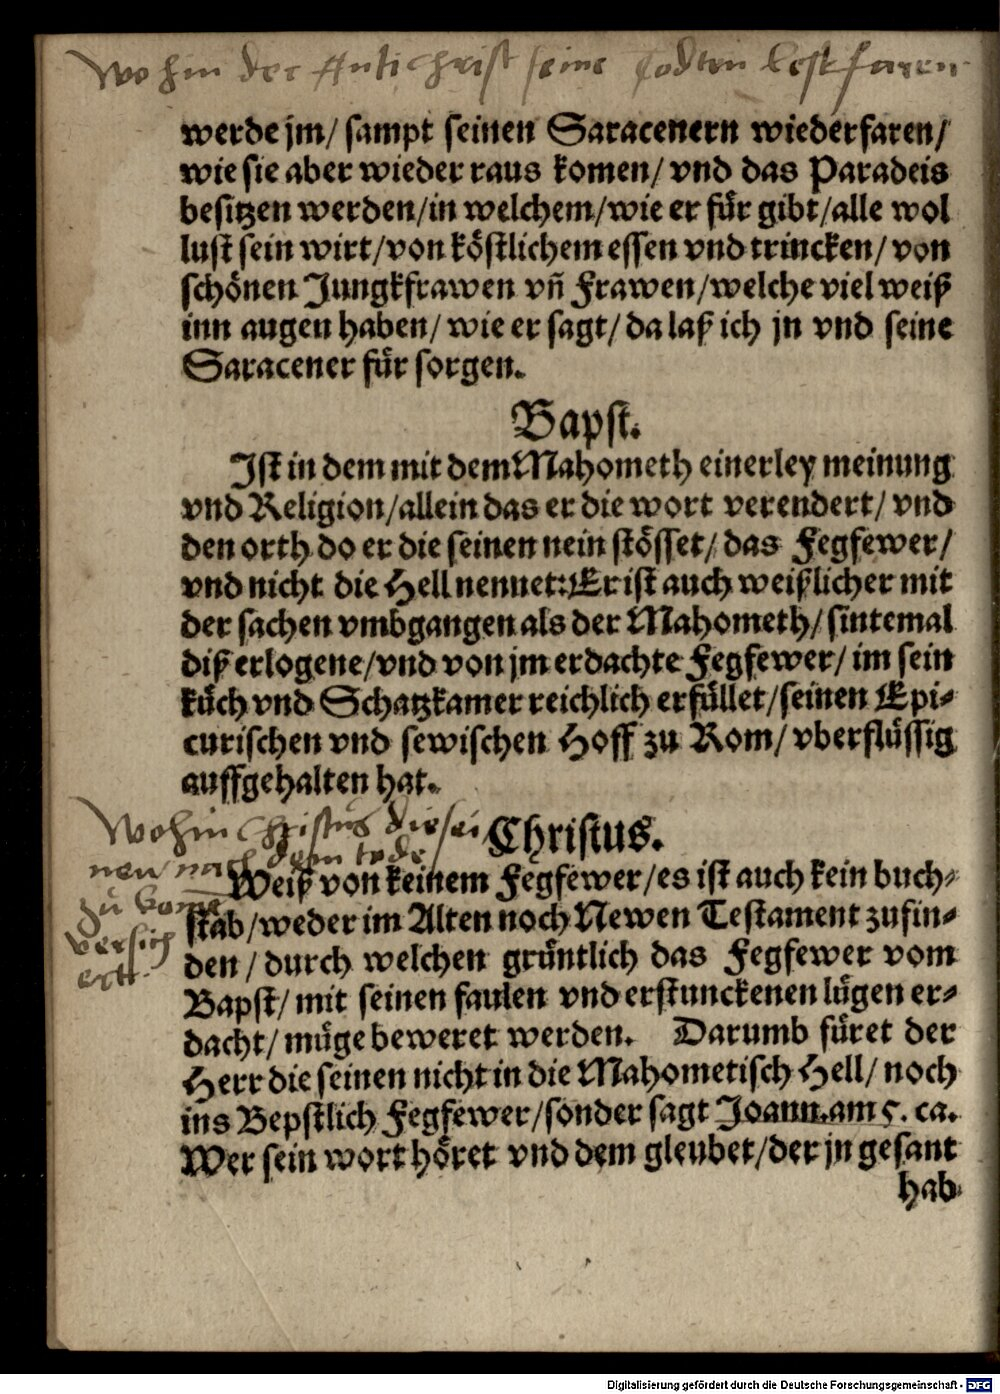 Wo hin der Antichrist seine Todten lest faren
werde jm/ sampt seinen Saracenern wiederfaren/
wie sie aber wieder raus komen/ vnd das Paradeis
besitzen werden/in welchem/wie er für gibt/alle wol
lust sein wirt/von köstlichem essen vnd trincken/ von
schönen Jungkfrawen vñ Frawen/welche viel weiß
inn augen haben/ wie er sagt/ da laß ich jn vnd seine
Saracener für sorgen.
Bapst.
Ist in dem mit dem Mahometh einerley meinung
vnd Religion/allein das er die wort verendert/ vnd
den orth do er die seinen nein stösset/ das Fegfewer/
vnd nicht die Hell nennet: Er ist auch weißlicher mit
der sachen vmbgangen als der Mahometh/ sintemal
diß erlogene/vnd von jm erdachte Fegfewer/ im sein
küch vnd Schatzkamer reichlich erfüllet/seinen Epi-
curischen vnd sewischen Hoff zu Rom/ vberflüssig
auffgehalten hat.
Wohin Christus die sei
nen nach dem tode
zu kome
versich
ertt
Christus.
Weiß von keinem Fegfewer/es ist auch kein buch-
stab/weder im Alten noch Newen Testament zufin-
den/ durch welchen grüntlich das Fegfewer vom
Bapst/ mit seinen faulen vnd erstunckenen lügen er-
dacht/ müge beweret werden. Darumb füret der
Herr die seinen nicht in die Mahometisch Hell/ noch
ins Bepstlich Fegfewer/sonder sagt Joann.am 5. ca.
Wer sein wort höret vnd dem gleubet/der jn gesant
hab
Digitalisierung gefördert durch die Deutsche Forschungsgemeinschaft - DFG